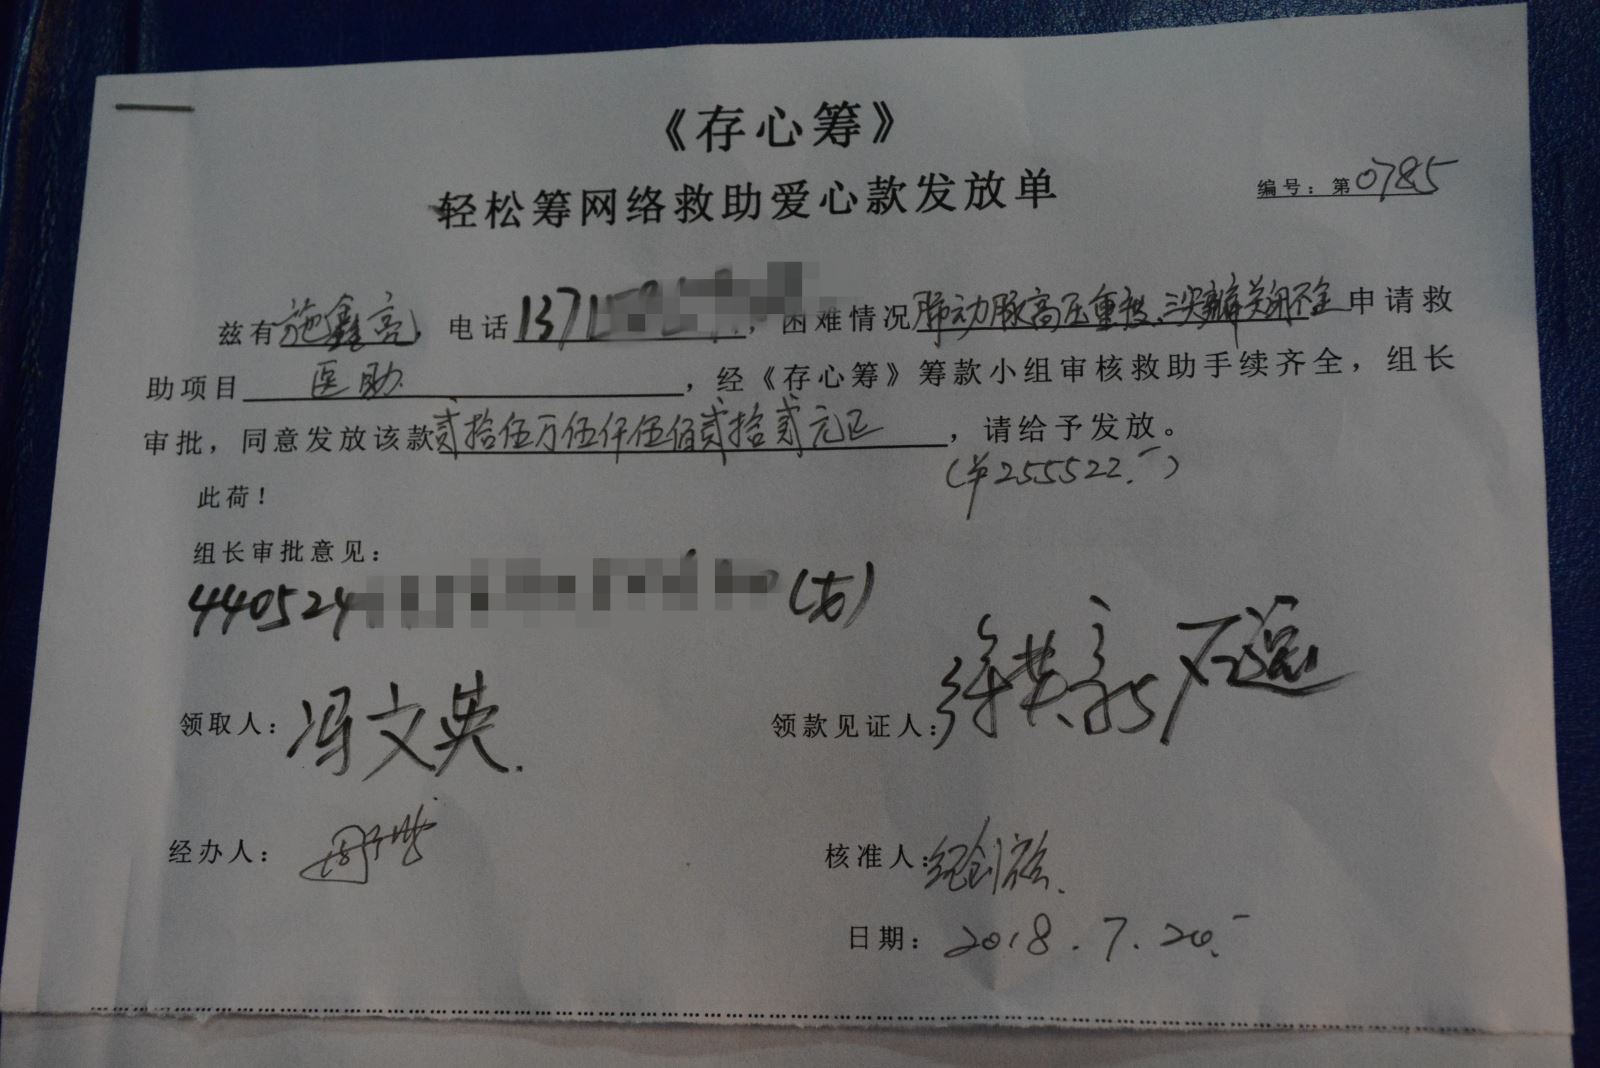 《存心筹》
轻松筹网络救助爱心款发放单
编号：第0785
兹有施鑫亮，电话137，困难情况肺动脉高压重度、三尖瓣关闭不全申请救
助项目 医助，经《存心筹》筹款小组审核救助手续齐全，组长
审批，同意发放该款贰拾伍万伍仟伍佰贰拾贰元正，请给予发放。
（¥255522.-）
此荷！
组长审批意见：
440524
领取人：冯文英. 领款见证人：
经办人： 核准人：
日期：2018.7.20.-